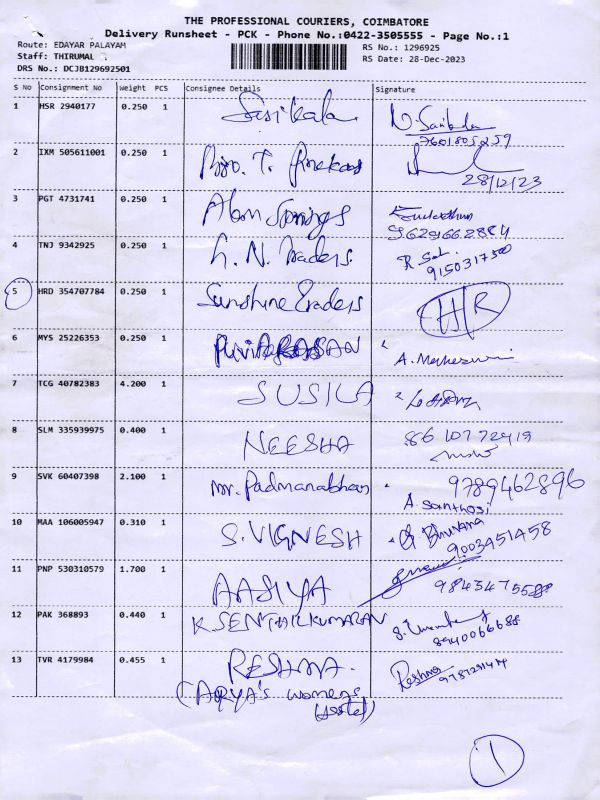 THE PROFESSIONAL COURIERS, COIMBATORE
Delivery Runsheet - PCK - Phone No.:0422-3505555 - Page No.:1
Route: EDAYAR PALAYAM
RS No.: 1296925
Staff: THIRUMAL
RS Date: 28-Dec-2023
DRS No.: DCJB129692501
S No Consignment No Weight PCS Consignee Details Signature
1 HSR 2940177 0.250 1 Sasikala
7601805259
2 IXM 505611001 0.250 1
28/12/23
3 PGT 4731741 0.250 1 Alan Springs
9629662884
4 TNJ 9342925 0.250 1 G. N. Traders.
9150317500
5 HRD 354707784 0.250 1 Sunshine Traders H/R
6 MYS 25226353 0.250 1 A. Maheswari
7 TCG 40782383 4.200 1 SUSILA
8 SLM 335939975 0.400 1 NEESHA 8610772419
9 SVK 60407398 2.100 1 Mr. Padmanabhan 9789462896
A. Santhosi
10 MAA 106005947 0.310 1 S. VIGNESH Bhuvana
9003451458
11 PNP 530310579 1.700 1 AASIYA
9843475588
12 PAK 368893 0.440 1 K SENTHILKUMARAN
8940066688
13 TVR 4179984 0.455 1 RESHMA. Reshma
(ARYA's womens
Hostel)
1